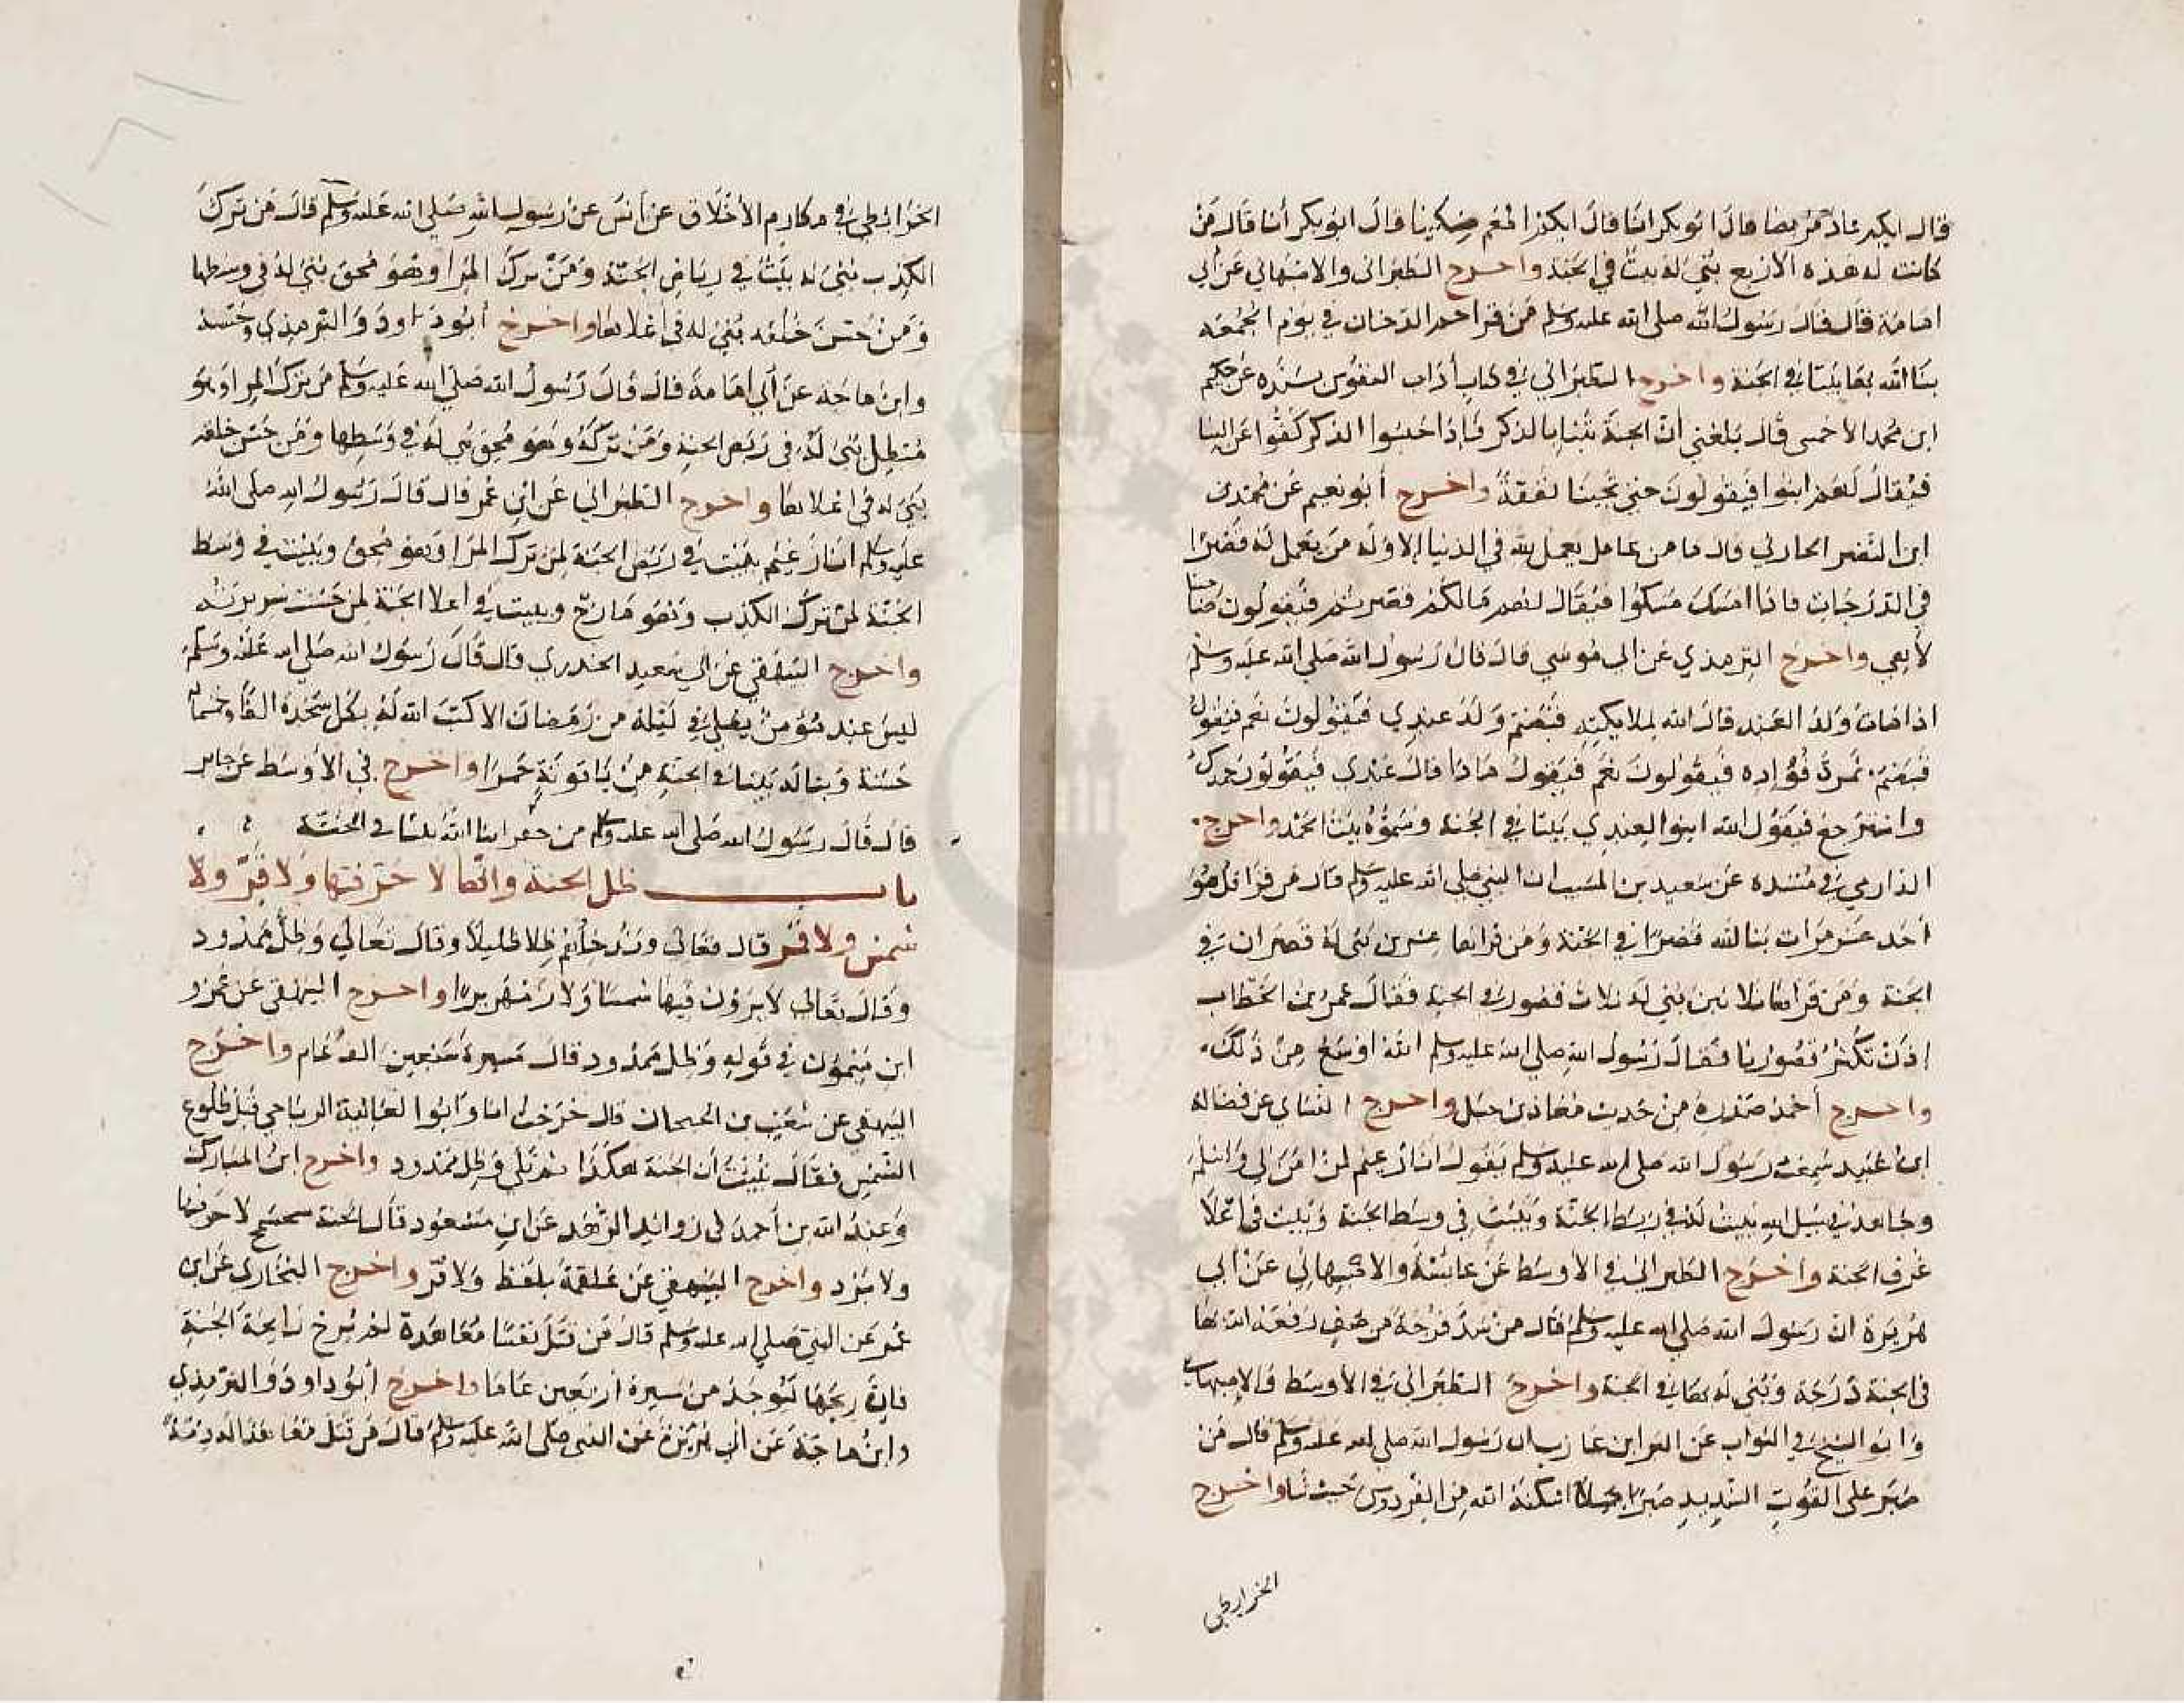 قال ايكم عاد مريضا قال ابو بكر انا قال ايكم اطعم مسكينا قال ابو بكر أنا قال من
كانت له هذه الأربع بني له بيت في الجنة واخرج الطبراني والاصبهاني عن أبي
امامة قال قال رسول الله صلى الله عليه وسلم من قرا حم الدخان في يوم الجمعه
بنا الله بها بيتا في الجنة واخرج الطبراني في كتاب أداب النفوس بسنده عن حكيم
ابن محمد الاخمسى قال بلغني أن الجنة تبنا بالذكر فإذا حبسوا الذكر كفوا عن البنا
فيقال لهم ابنوا فيقولون حتى تجينا نفقة واخرج أبو نعيم عن محمد
ابن النضر الحارثي قال ما من عامل يعمل لله في الدنيا إلا وله من يعمل له قصرا
في الدرجات فاذا امسك مسكوا فيقال لهم مالكم قصرتم فيقولون صاحبنا
لاهي واخرج الترمذي عن ابى موسي قال قال رسول الله صلى الله عليه وسلم
اذا مات ولد العبد قال الله لملايكته قبضتم ولد عبدي فيقولون نعم فيقول
قبضتم ثمرة فؤاده فيقولون نعم فيقول ماذا قال عبدي فيقولون حمدك
واسترجع فيقول الله ابنوا لعبدي بيتا في الجنة وسموه بيت الحمد واخرج
الدارمي في مسنده عن سعيد بن المسيب ان النبي صلى الله عليه وسلم قال من قرا قل هو
أحد عشر مرات بنا لله قصرا في الجنة ومن قراها عشرين بنى له قصران في
الجنة ومن قراها ثلاثين بني له ثلاث قصور في الجنة فقال عمر بن الخطاب
إذن تكثر قصورنا فقال رسول الله صلى الله عليه وسلم الله اوسع من ذلك
واخرج أحمد صدره من حديث معاذ بن جبل واخرج النساى عن فضالة
ابن عبيد سمعت رسول الله صلى الله عليه وسلم يقول انا زعيم لمن امن بي واسلم
وجاهد في سبيل الله ببيت له في ربط الجنة وبيت في وسط الجنة وبيت في اعلا
غرف الجنة واخرج الطبراني في الأوسط عن عائشة والاصبهاني عن أبي
هريرة ان رسول الله صلى الله عليه وسلم قال من سد فرجة من صف رفعه الله بها
في الجنة درجة وبني له بها في الجنة واخرج الطبراني في الأوسط والإصبهاني
وابو الشيخ في الثواب عن البرا بن عازب ان رسول الله صلى الله عليه وسلم قال من
صبر على القوت الشديد صبرا جميلا اسكنه الله من الفردوس حيث شا واخرج
الخرايطي
الخرائطي في مكارم الأخلاق عن أنس عن رسول الله صلى الله عليه وسلم قال من ترك
الكذب بني له بيت في رياض الجنة ومن ترك المرا وهو محق بني له في وسطها
ومن حسن خلقه بني له في اعلاها واخرج أبو داود والترمذي وحسنه
وابن ماجة عن أبي امامة قال قال رسول الله صلى الله عليه وسلم من ترك المرا وهو
مبطل بني له في ربض الجنة ومن تركه وهو محق بني له في وسطها ومن حسن خلقه
بني له في اعلاها واخرج الطبراني عن ابن عمر قال قال رسول الله صلى الله
عليه وسلم انا زعيم ببيت في ربض الجنة لمن ترك المرا وهو محق وببيت في وسط
الجنة لمن ترك الكذب وهو مازح وببيت في اعلا الجنة لمن حسنت سريرته
واخرج البيهقي عن ابي سعيد الخدري قال قال رسول الله صلى الله عليه وسلم
ليس عبد مؤمن يصلي في ليلة من رمضان الا كتب الله له بكل سجدة الفا وخمسمايه
حسنة وبنا له بيتا في الجنة من ياقوتة حمرا واخرج في الأوسط عن جابر
قال قال رسول الله صلى الله عليه وسلم من حفر ابنا الله بيتا في الجنة
باب ظل الجنة وانها لا حر فيها ولا قر ولا
شمس ولا قمر قال تعالى وندخلهم ظلا ظليلا وقال تعالي وظل ممدود
وقال تعالى لا يرون فيها شمسا ولا زمهريرا واخرج البيهقي عن عمرو
ابن ميمون في قوله وظل ممدود قال مسيرة سبعين الف عام واخرج
البيهقي عن شعيب بن الحبحاب قال خرجت انا وابوا العالية الرياحي قبل طلوع
الشمس فقال نبيت أن الجنة هكذا ثم تلى وظل ممدود واخرج ابن المبارك
وعبد الله بن أحمد في زوائد الزهد عن ابن مسعود قال الجنة سجسج لا حر فيها
ولا برد واخرج البيهقي عن علقمة بلفظ ولا قر واخرج البخاري عن ابن
عمر عن النبي صلى الله عليه وسلم قال من قتل نفسا معاهدة لم يرح رايحة الجنة
فان ريحها لتوجد من مسيرة أربعين عاما واخرج أبو داود والترمذي
وابن ماجة عن ابي هريرة عن النبي صلى الله عليه وسلم قال من قتل معاهدا له ذمة